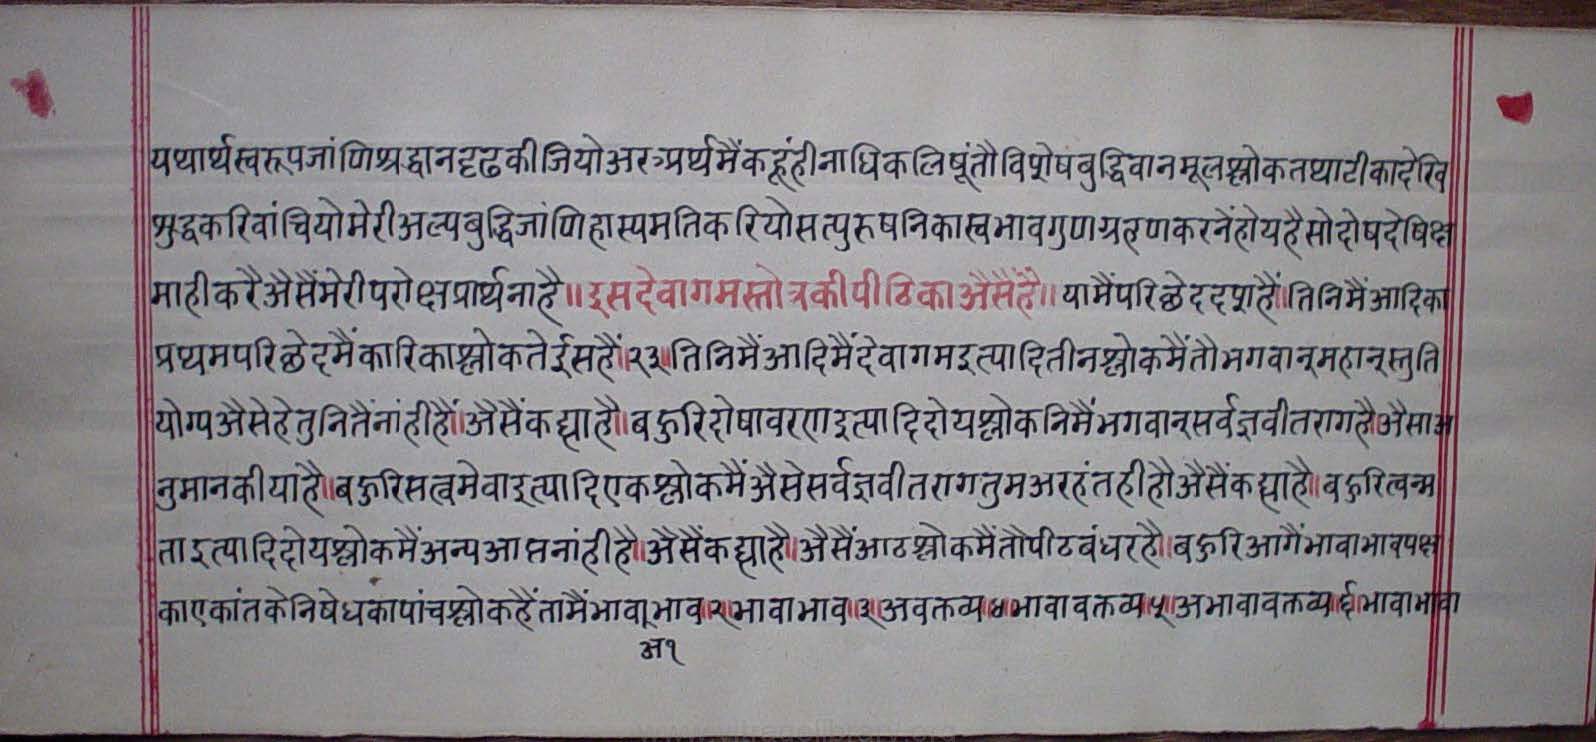 यथार्थस्वरूपजांणिश्रद्धानदृढकीजियोअरअर्थमैंकहूंहीनाधिकलिषूंतौविशेषबुद्धिवानमूलश्लोकतथाटीकादेखि
शुद्धकरिवांचियोमेरीअल्पबुद्धिजांणिहास्यमतिकरियोसत्पुरुषनिकास्वभावगुणग्रहणकरनेंहोयहैसोदोषदेषिक्ष
माहीकरैअैसैंमेरीपरोक्षप्रार्थनाहै॥इसदेवागमस्तोत्रकीपीठिकाअैसैंहै॥यामैंपरिछेददशहैं॥तिनिमैंआदिका
प्रथमपरिछेदमैंकारिकाश्लोकतेईसहैं॥२३॥तिनिमैंआदिमैंदेवागमइत्यादितीनश्लोकमैंतौभगवान्महान्स्तुति
योग्यअैसेहेतुनितैंनांहीहैं॥अैसैंकह्याहै॥बहुरिदोषावरणइत्यादिदोयश्लोकनिमैंभगवान्सर्वज्ञवीतरागहैअैसाअ
नुमानकीयाहै॥बहुरिसत्वमेवाइत्यादिएकश्लोकमैंअैसेसर्वज्ञवीतरागतुमअरहंतहीहौअैसैंकह्याहै॥बहुरित्वन्म
ताइत्यादिदोयश्लोकमैंअन्यआप्तनांहीहै॥अैसैंकह्याहै॥अैसैंआठश्लोकमैंतौपीठबंधरहै॥बहुरिआगैंभावाभावपक्ष
काएकांतकेनिषेधकापांचश्लोकहैंतामैंभावाभाव२भावाभाव॥३॥अवक्तव्य४भावावक्तव्य५अभावावक्तव्य६भावाभावा
अ१